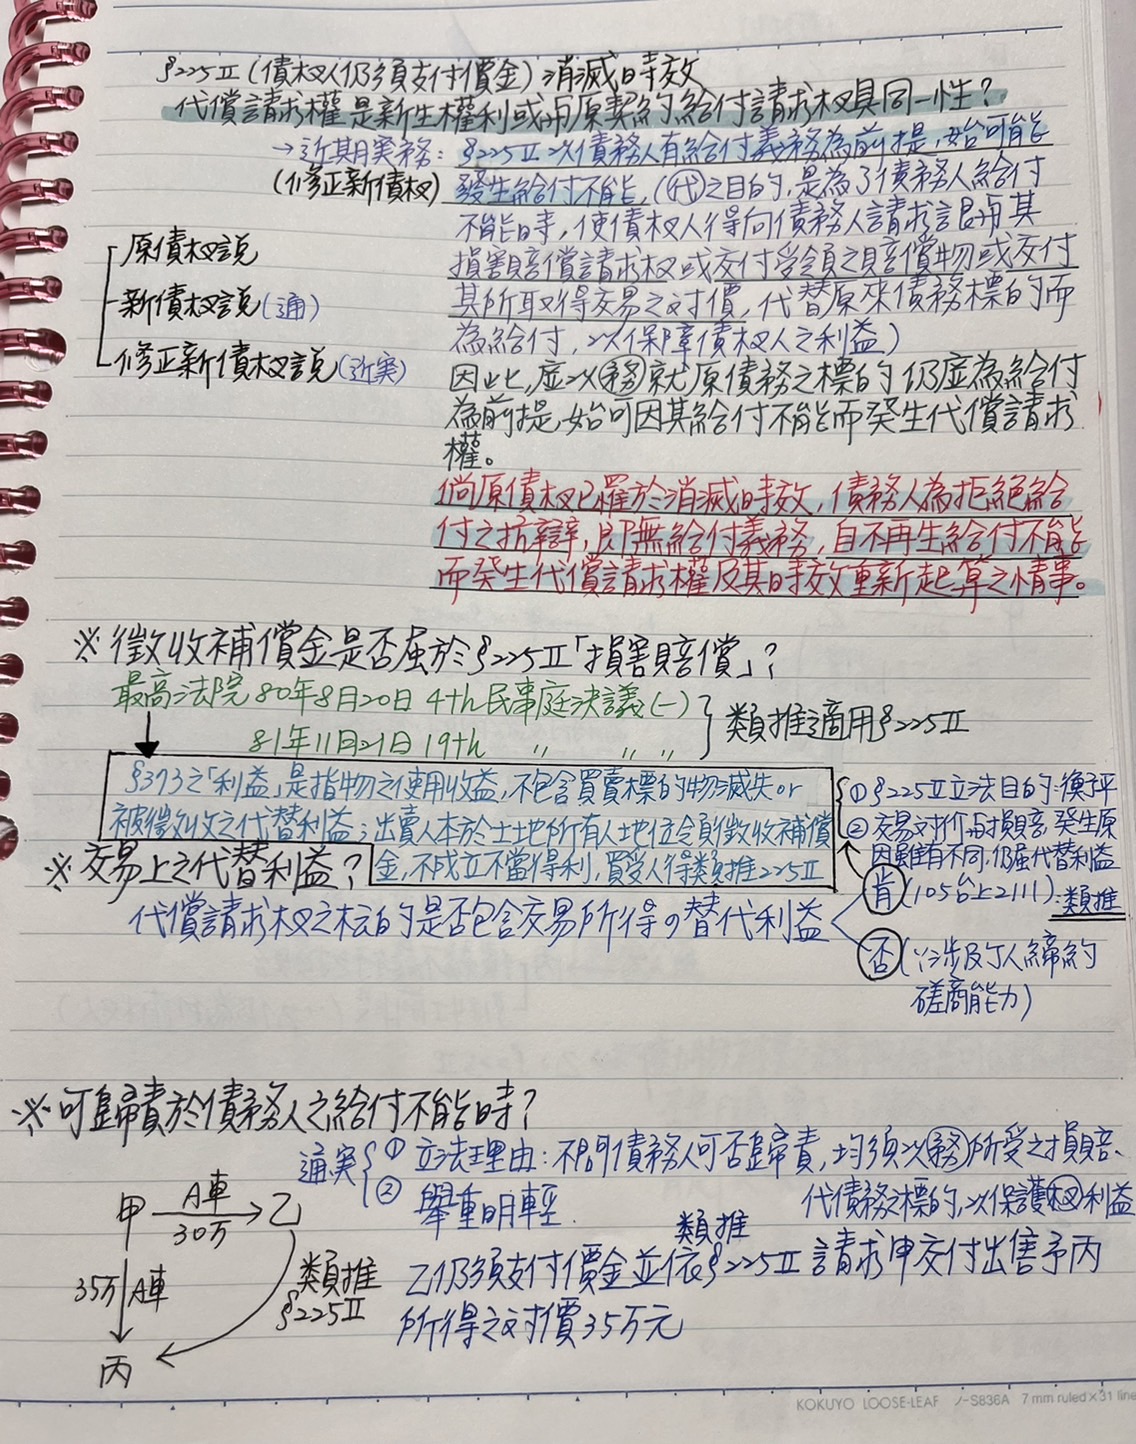 §225Ⅱ(債权人仍須支付價金)消滅時效
代償請求權是新生權利或與原契約給付請求权具同一性?
→近期実務: §225Ⅱ以債務人有給付義務為前提,始可能
(修正新債权) 發生給付不能,(代之目的,是為了債務人給付
不能時,使債权人得向債務人請求讓與其
損害賠償請求权或交付受領之賠償物或交付
其所取得交易之対價,代替原來債務標的而
為給付,以保障債权人之利益)
原債权說
新債权說(通)
修正新債权說(近実)
因此,應以務就原債務之標的仍應為給付
為前提,始可因其給付不能而發生代償請求
權。
倘原債权已罹於消滅時效,債務人為拒絕給
付之抗辯,即無給付義務,自不再生給付不能
而發生代償請求權及其時效重新起算之情事。
※徵收補償金是否屬於§225Ⅱ「損害賠償」?
最高法院80年8月20日4th民事庭決議(一)
81年11月21日19th 〃 〃 〃
類推適用§225Ⅱ
§373之「利益」是指物之使用收益,不包含買賣標的物滅失or
被徵收之代替利益;出賣人本於土地所有人地位受領徵收補償
金,不成立不當得利,買受人得類推225Ⅱ
①§225Ⅱ立法目的:衡平
②交易対价與損賠,發生原
因雖有不同,仍屬代替利益
※交易上之代替利益?
肯(105台上2111):類推
代償請求权之标的是否包含交易所得の替代利益
否(∵涉及个人締約
磋商能力)
※可歸責於債務人之給付不能時?
通実 ①立法理由:不問債務人可否歸責,均須以務所受之損賠、
代債務之標的,以保護权利益
②舉重明輕.
甲 A車 30万 乙
35万 A車
丙
類推
§225Ⅱ
類推
乙仍須支付價金並依§225Ⅱ請求甲交付出售予丙
所得之対價35万元
KOKUYO LOOSE-LEAF ノ-S836A 7 mm ruled×31 line